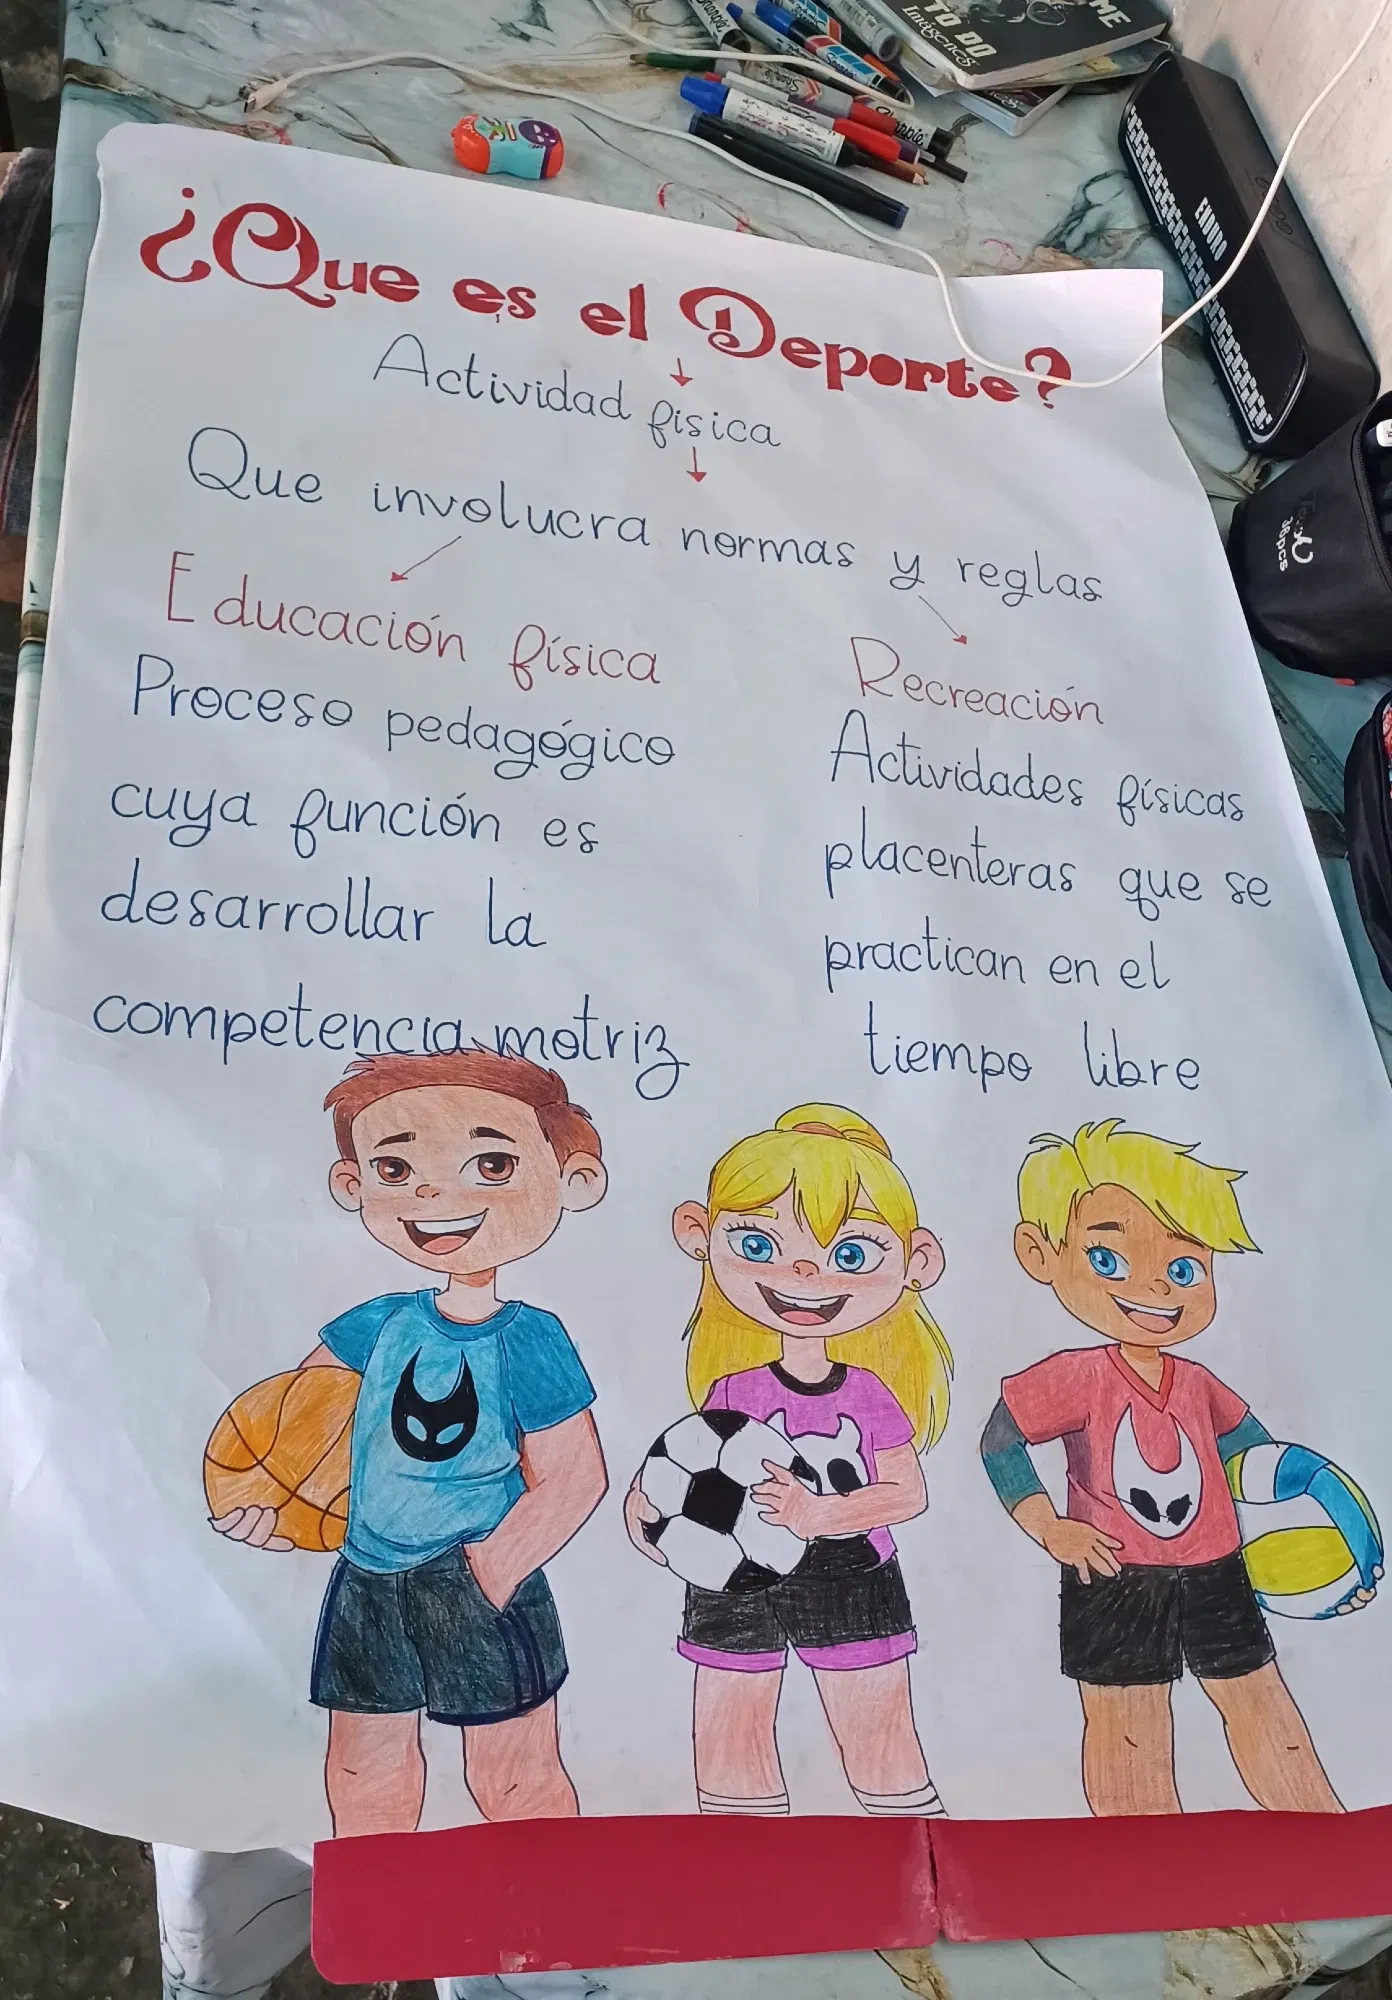 TO DO
ME
Imágenes
Sharpie
ENDURO
36pcs
¿Que es el Deporte?
Actividad física
Que involucra normas y reglas
Educación física
Proceso pedagógico
cuya función es
desarrollar la
competencia motriz
Recreación
Actividades físicas
placenteras que se
practican en el
tiempo libre